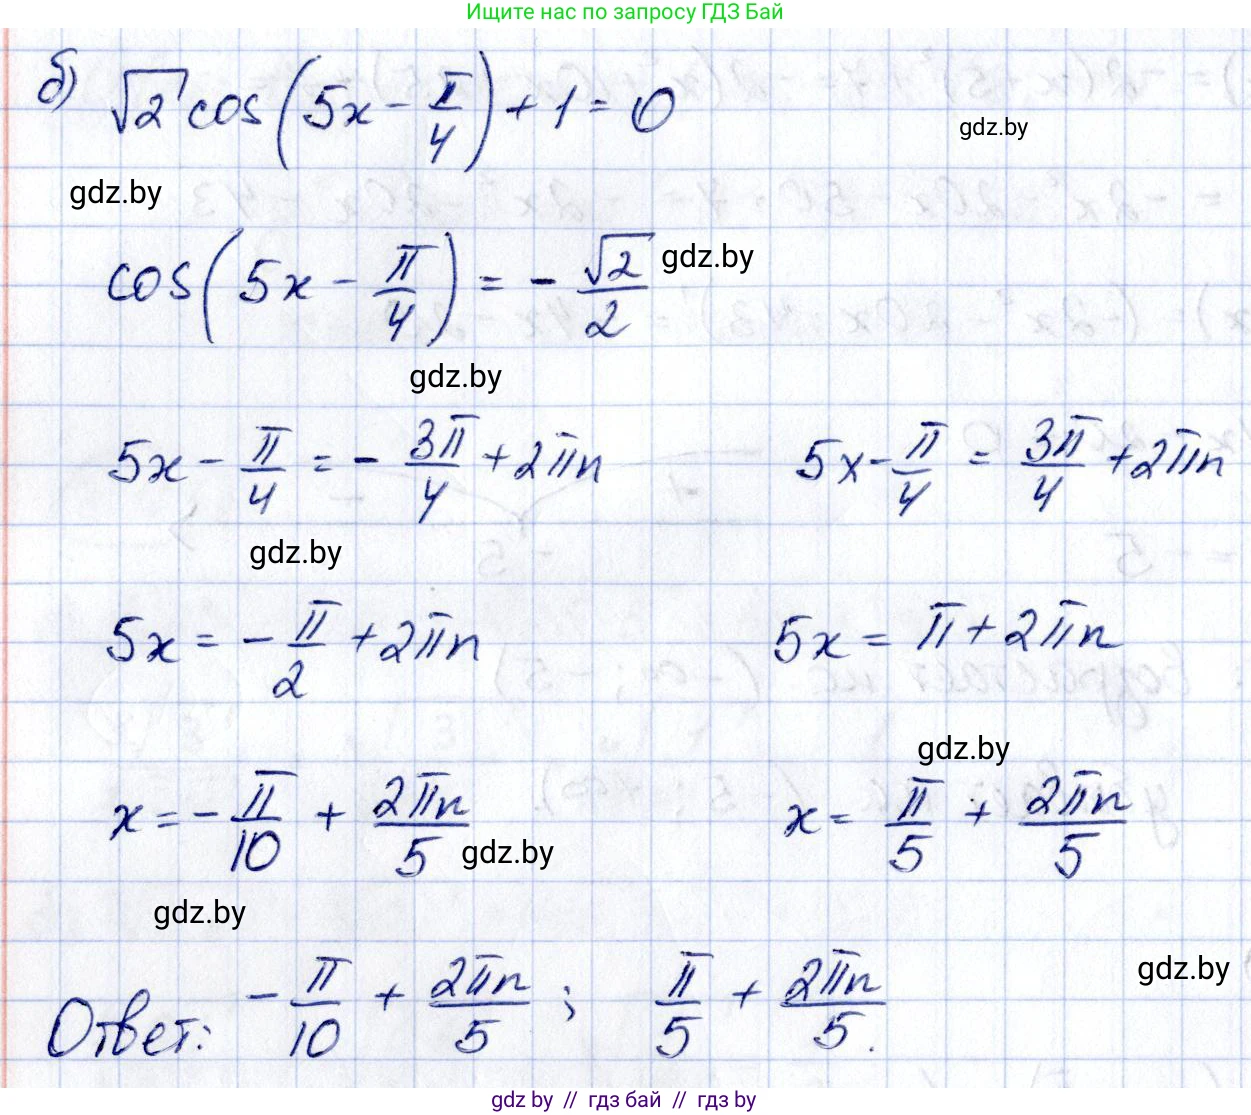 Ищите нас по запросу ГДЗ Бай
б) √2 cos(5x - π/4) + 1 = 0
gdz.by
gdz.by
cos(5x - π/4) = - √2/2
gdz.by
gdz.by
5x - π/4 = - 3π/4 + 2πn 5x - π/4 = 3π/4 + 2πn
gdz.by
5x = - π/2 + 2πn 5x = π + 2πn
gdz.by
x = - π/10 + 2πn/5 x = π/5 + 2πn/5
gdz.by
gdz.by
gdz.by
Ответ: - π/10 + 2πn/5 ; π/5 + 2πn/5.
gdz.by // гдз бай // гдз by